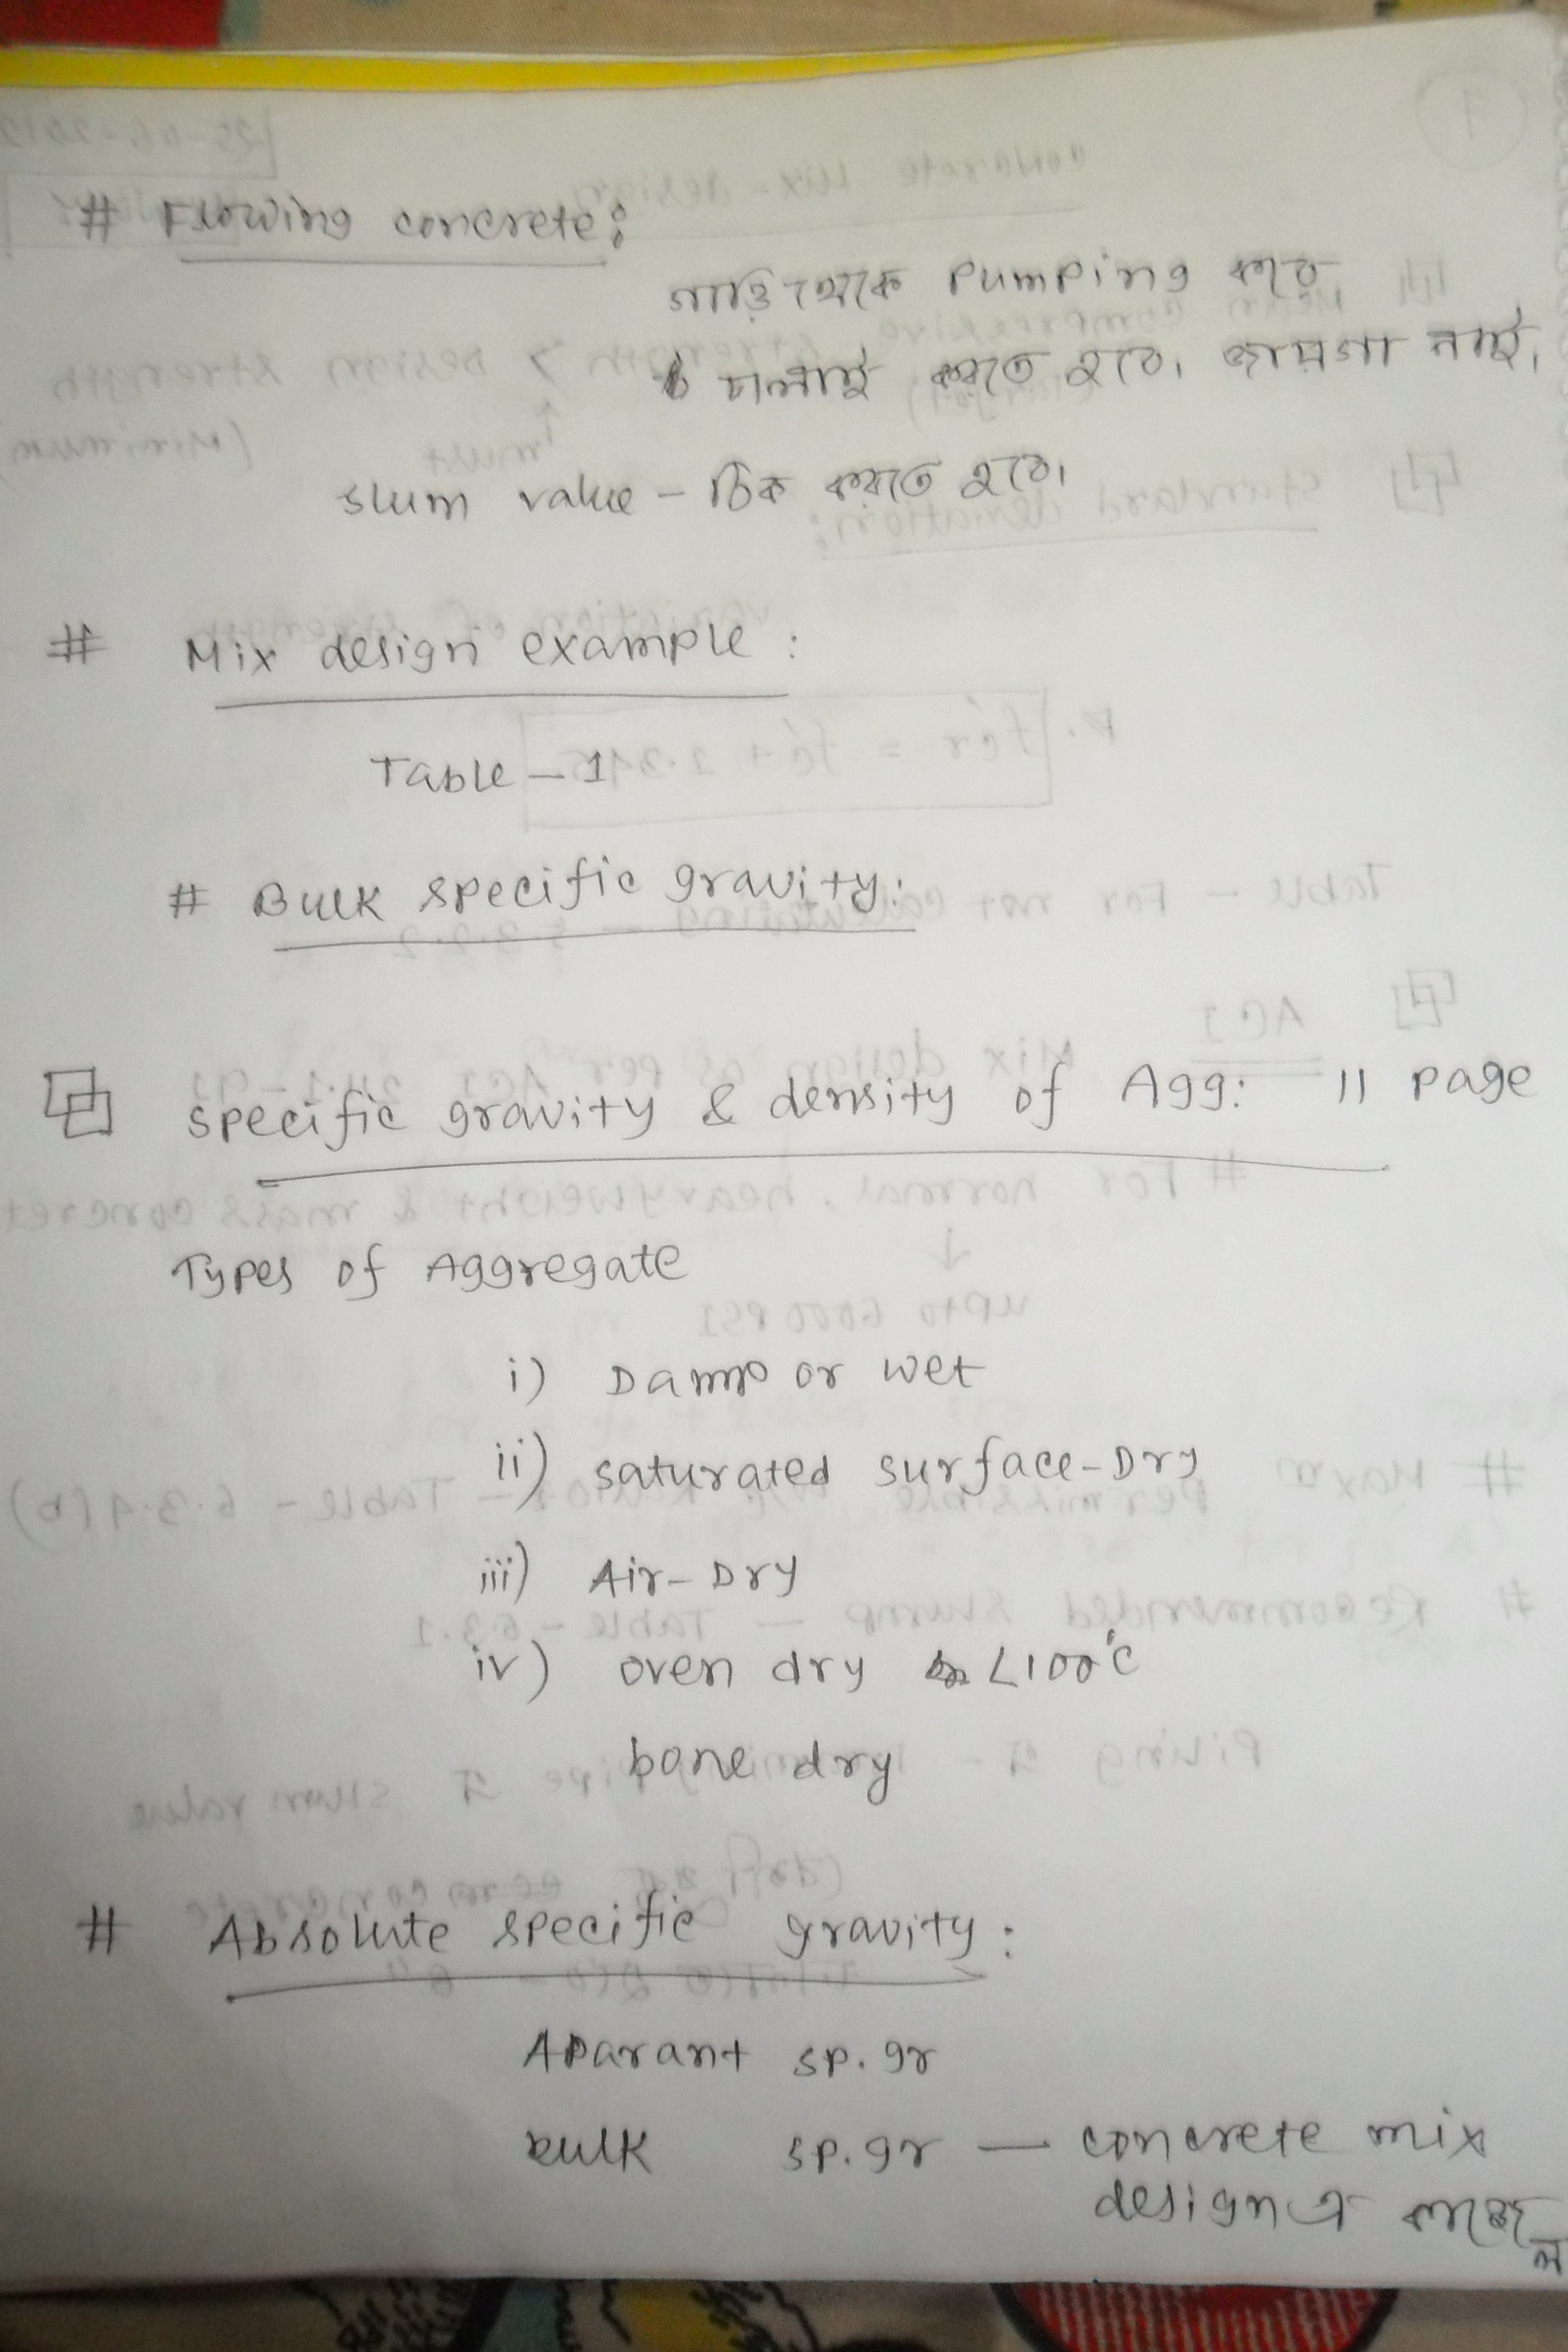 # Flowing concrete:
গাড়ি থেকে Pumping করে
ঢালাই করতে হবে। জায়গা নাই।
slum value – ঠিক করতে হবে।
# Mix design example :
Table – 1
# Bulk specific gravity:
specific gravity & density of Agg: 11 page
Types of Aggregate
i) Damp or wet
ii) saturated surface-Dry
iii) Air-Dry
iv) oven dry <100°c
bone dry
# Absolute specific gravity :
Aparant sp.gr
bulk sp.gr — concrete mix
design এ